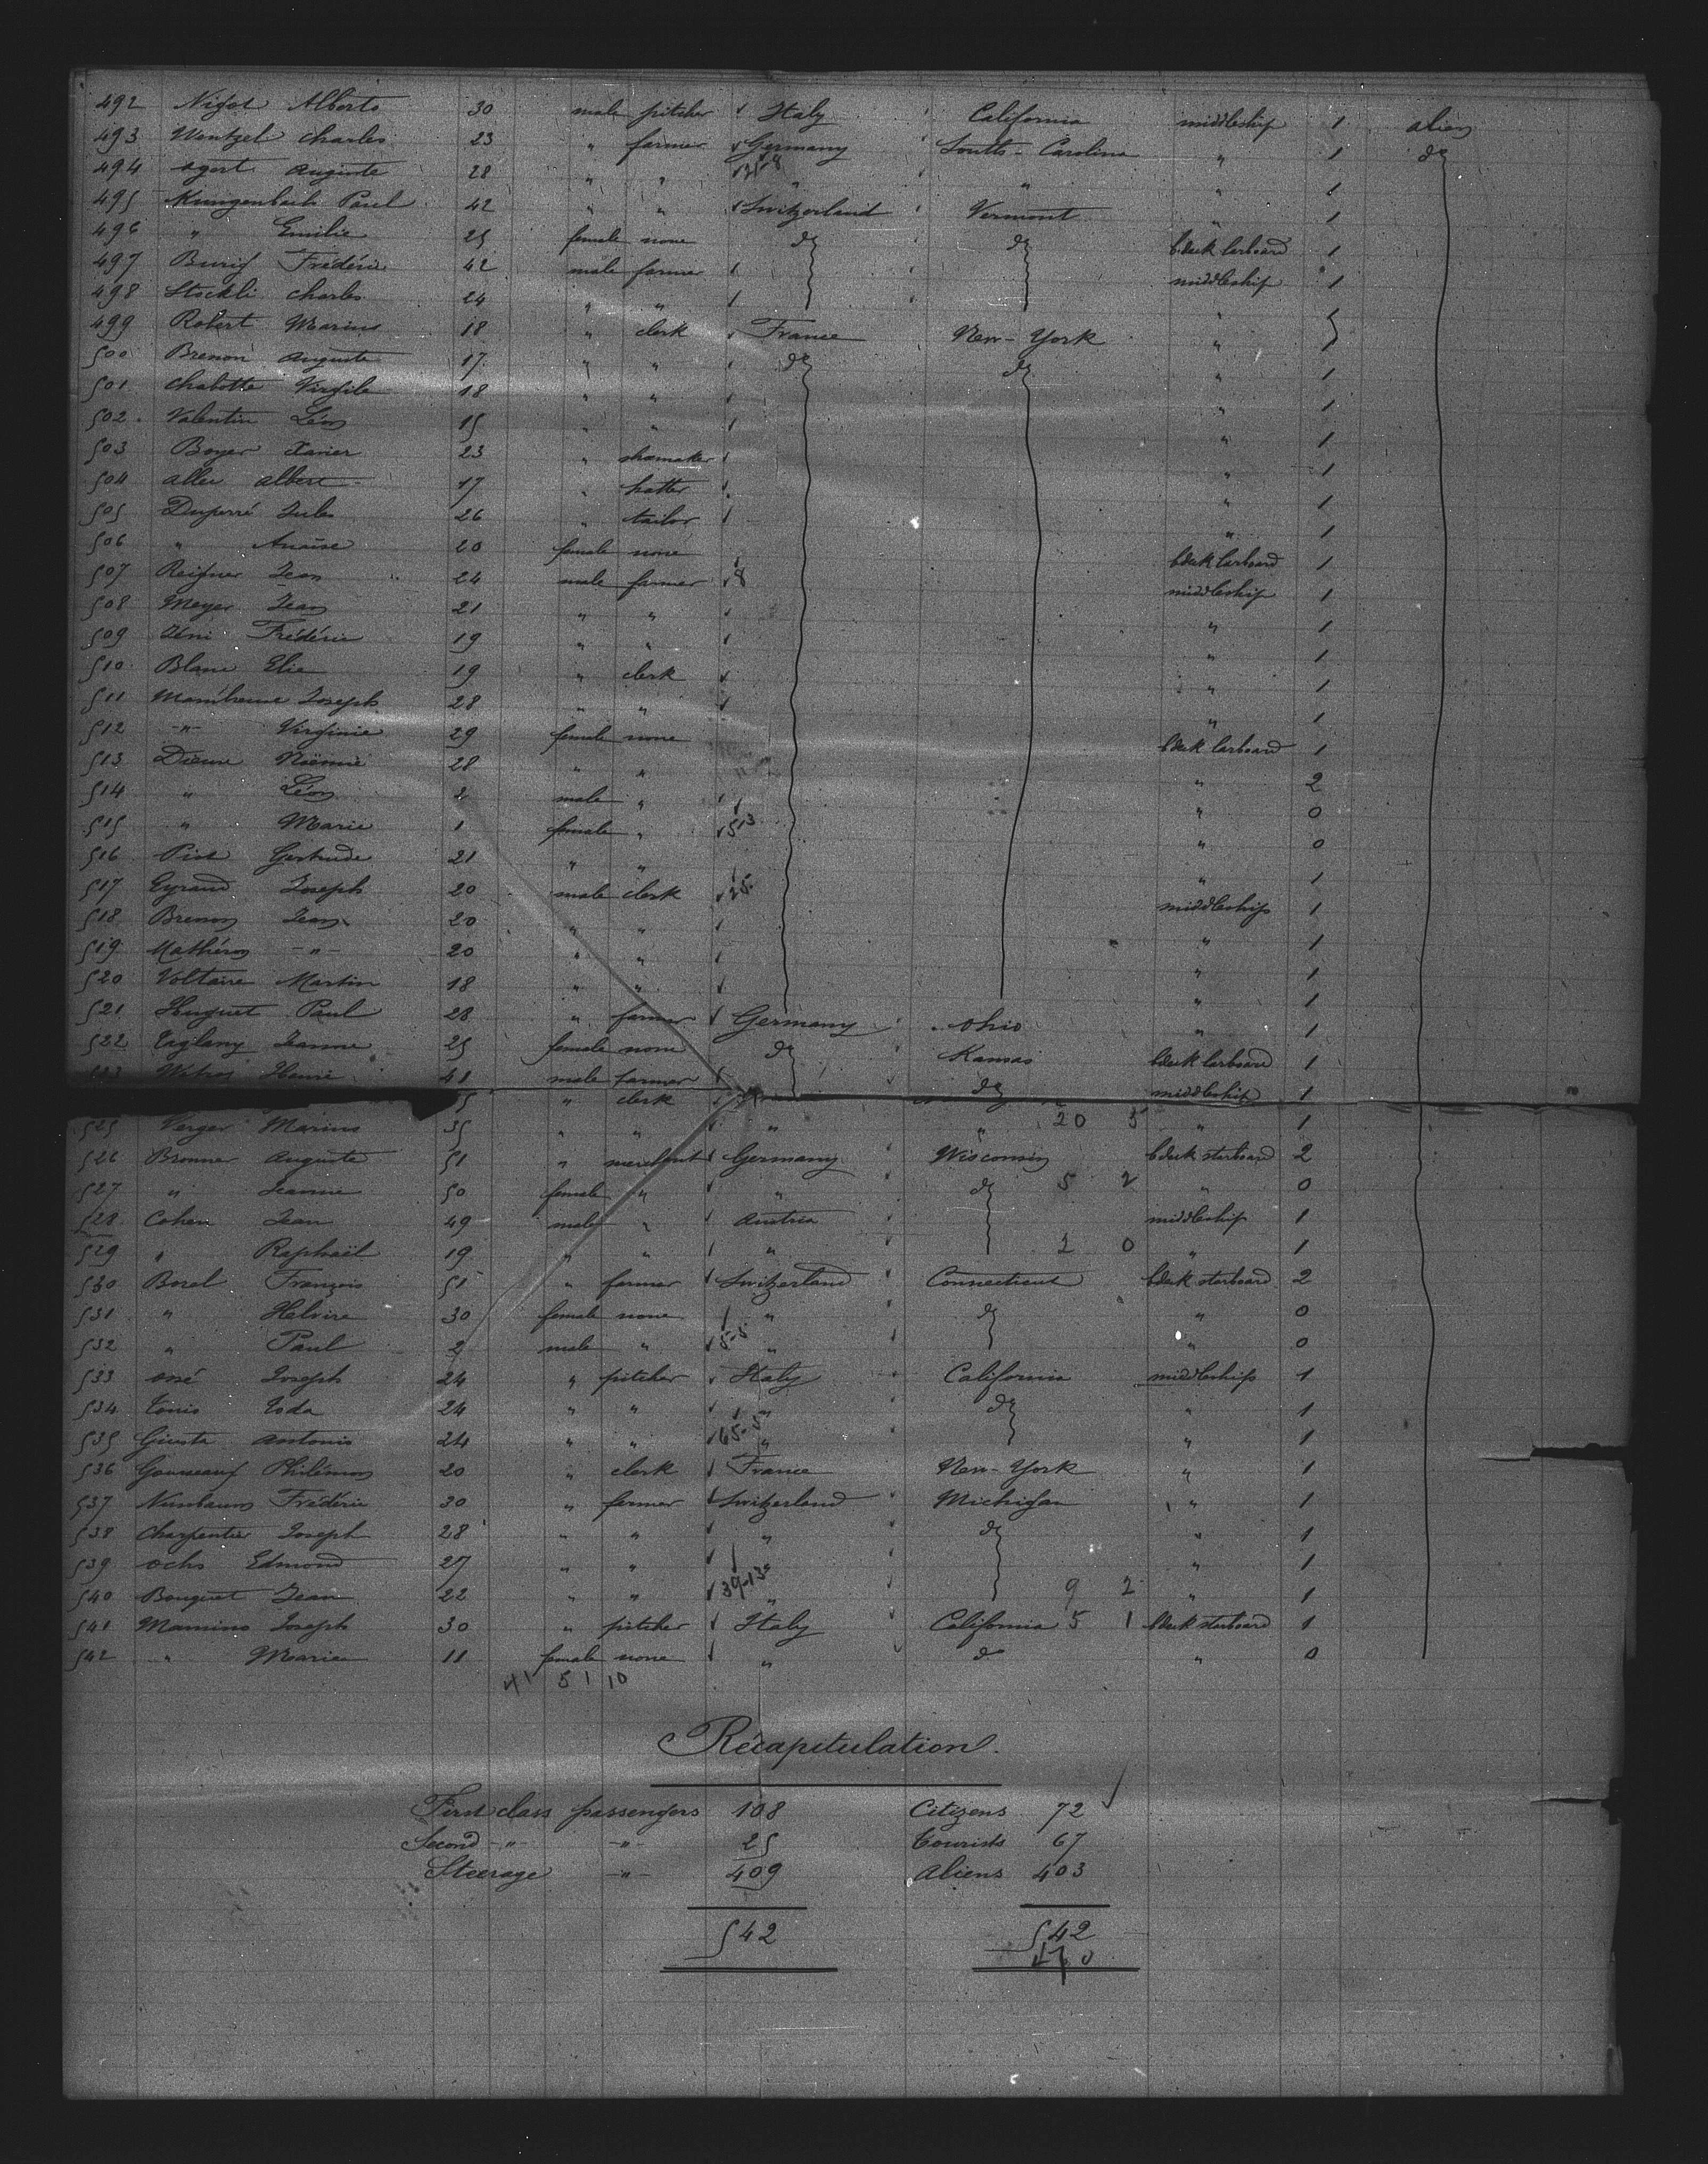 492 Nigot Alberto 30 male pitcher Italy California middleship 1 alien
493 Wentzel Charles 23 " farmer Germany South-Carolina " 1 do
494 Agert Auguste 28 " " " " " 1
495 Paul 42 " " Switzerland Vermont " 1
496 " Emilie 25 female none do do bdeck larboard 1
497 Burig Frédéric 42 male farmer middleship 1
498 Stockli Charles 24 " " "
499 Robert Marius 18 " clerk France New-York "
500 Brenon Auguste 17 " " do do " 1
501 Chabotte Virgile 18 " " " 1
502 Valentin Léon 15 " " " 1
503 Boyer Xavier 23 " shomaker " 1
504 Albert 17 " hatter " 1
505 Duperré Jules 26 " tailor " 1
506 " Anaïse 20 female none bdeck larboard 1
507 Reigner Jean 24 male farmer middleship 1
508 Meyer Jean 21 " " " 1
509 Frédéric 19 " " " 1
510 Blanc Elie 19 " clerk " 1
511 Joseph 28 " " " 1
512 -"- Virginie 29 female none bdeck larboard 1
513 Noëmie 28 " " " 2
514 " Léon 2 male " " 0
515 " Marie 1 female " 513 " 0
516 Gertrude 21 " " " 1
517 Eyraud Joseph 20 male clerk 25 middleship 1
518 Brenon Jean 20 " " " 1
519 Mathéron -"- 20 " " " 1
520 Voltaire Martin 18 " " " 1
521 Huguet Paul 28 " farmer Germany Ohio " 1
522 Jeanne 25 female none do Kansas bdeck larboard 1
Henri 41 male farmer do middleship 1
" clerk
525 Verger Marius 35 " " " " 20 5 " 1
526 Bronner Auguste 51 " merchant Germany Wisconsin bdeck starboard 2
527 " Jeanne 50 female " " do 5 2 " 0
528 Cohen Jean 49 male " Austria middleship 1
529 " Raphaël 19 " " " 2 0 " 1
530 Borel François 51 " farmer Switzerland Connecticut bdeck starboard 2
531 " Helvire 30 female none " do " 0
532 " Paul 2 male " 5-5 " " 0
533 Joseph 24 " pitcher Italy California middleship 1
534 Tonio 24 " " " do " 1
535 Giusta Antonio 24 " " 65-5 " " 1
536 Philémon 20 " clerk France New-York " 1
537 Nusbaum Frédéric 30 " farmer Switzerland Michigan " 1
538 Charpentier Joseph 28 " " " do " 1
539 Ochs Edmond 27 " " " 1
540 Bouquet Jean 22 " " 39-13 " 9 2 " 1
541 Mamino Joseph 30 " pitcher Italy California 5 1 bdeck starboard 1
542 " Maria 11 female none " do " 0
41 5 1 10
Récapitulation.
First class passengers 108 Citizens 72
Second -"- -"- 25 Tourists 67
Steerage -"- 409 Aliens 403
542 542